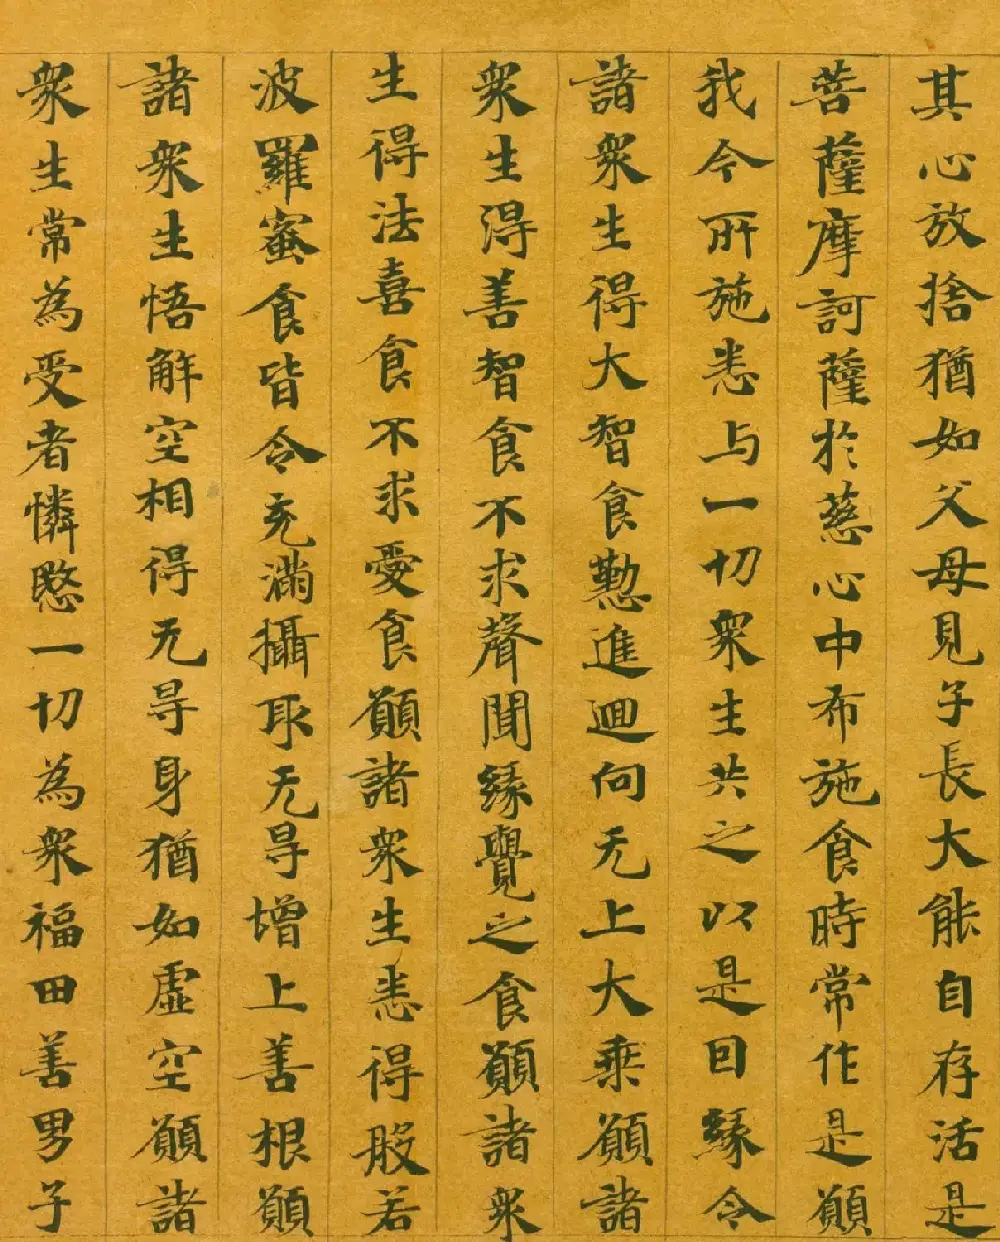 其心放捨猶如父母見子長大能自存活是
菩薩摩訶薩於慈心中布施食時常作是願
我今所施悉与一切衆生共之以是因緣令
諸衆生得大智食懃進迴向无上大乘願諸
衆生得善智食不求聲聞緣覺之食願諸衆
生得法喜食不求愛食願諸衆生悉得般若
波羅蜜食皆令充滿攝取无㝵增上善根願
諸衆生悟解空相得无㝵身猶如虛空願諸
衆生常為受者憐愍一切為衆福田善男子